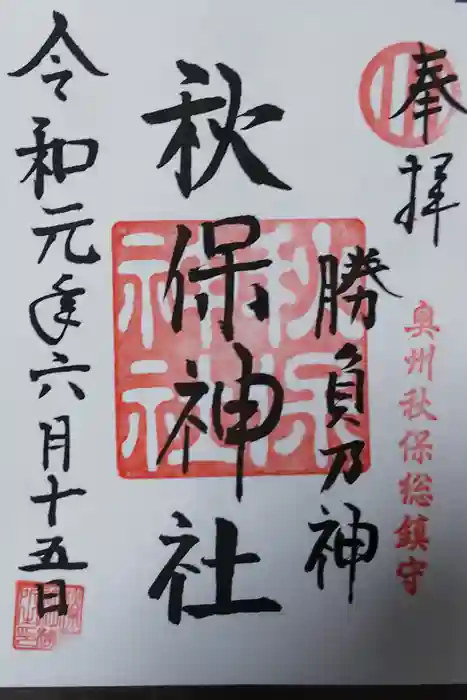 奉拝
奥州秋保総鎮守
勝負乃神
秋保神社
秋保神社
令和元年六月十五日